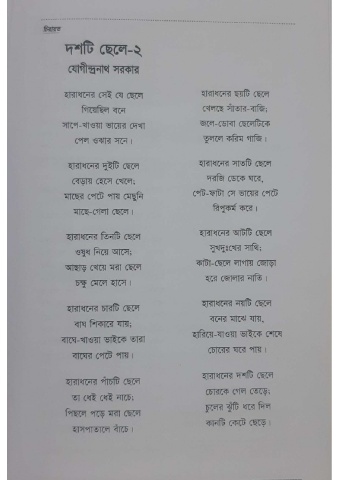 চিরায়ত
দশটি ছেলে-২
যোগীন্দ্রনাথ সরকার
হারাধনের সেই যে ছেলে
গিয়েছিল বনে
সাপে-খাওয়া ভায়ের দেখা
পেল ওঝার সনে।
হারাধনের দুইটি ছেলে
বেড়ায় হেসে খেলে;
মাছের পেটে পায় মেছুনি
মাছে-গেলা ছেলে।
হারাধনের তিনটি ছেলে
ওষুধ নিয়ে আসে;
আছাড় খেয়ে মরা ছেলে
চক্ষু মেলে হাসে।
হারাধনের চারটি ছেলে
বাঘ শিকারে যায়;
বাঘে-খাওয়া ভাইকে তারা
বাঘের পেটে পায়।
হারাধনের পাঁচটি ছেলে
তা ধেই ধেই নাচে;
পিছলে পড়ে মরা ছেলে
হাসপাতালে বাঁচে।
হারাধনের ছয়টি ছেলে
খেলছে সাঁতার-বাজি;
জলে-ডোবা ছেলেটিকে
তুললে করিম গাজি।
হারাধনের সাতটি ছেলে
দরজি ডেকে ঘরে,
পেট-ফাটা সে ভায়ের পেটে
রিপুকর্ম করে।
হারাধনের আটটি ছেলে
সুখদুঃখের সাথি;
কাটা-ছেলে লাগায় জোড়া
হরে জোলার নাতি।
হারাধনের নয়টি ছেলে
বনের মাঝে যায়,
হারিয়ে-যাওয়া ভাইকে শেষে
চোরের ঘরে পায়।
হারাধনের দশটি ছেলে
চোরকে গেল তেড়ে;
চুলের ঝুঁটি ধরে দিল
কানটি কেটে ছেড়ে।